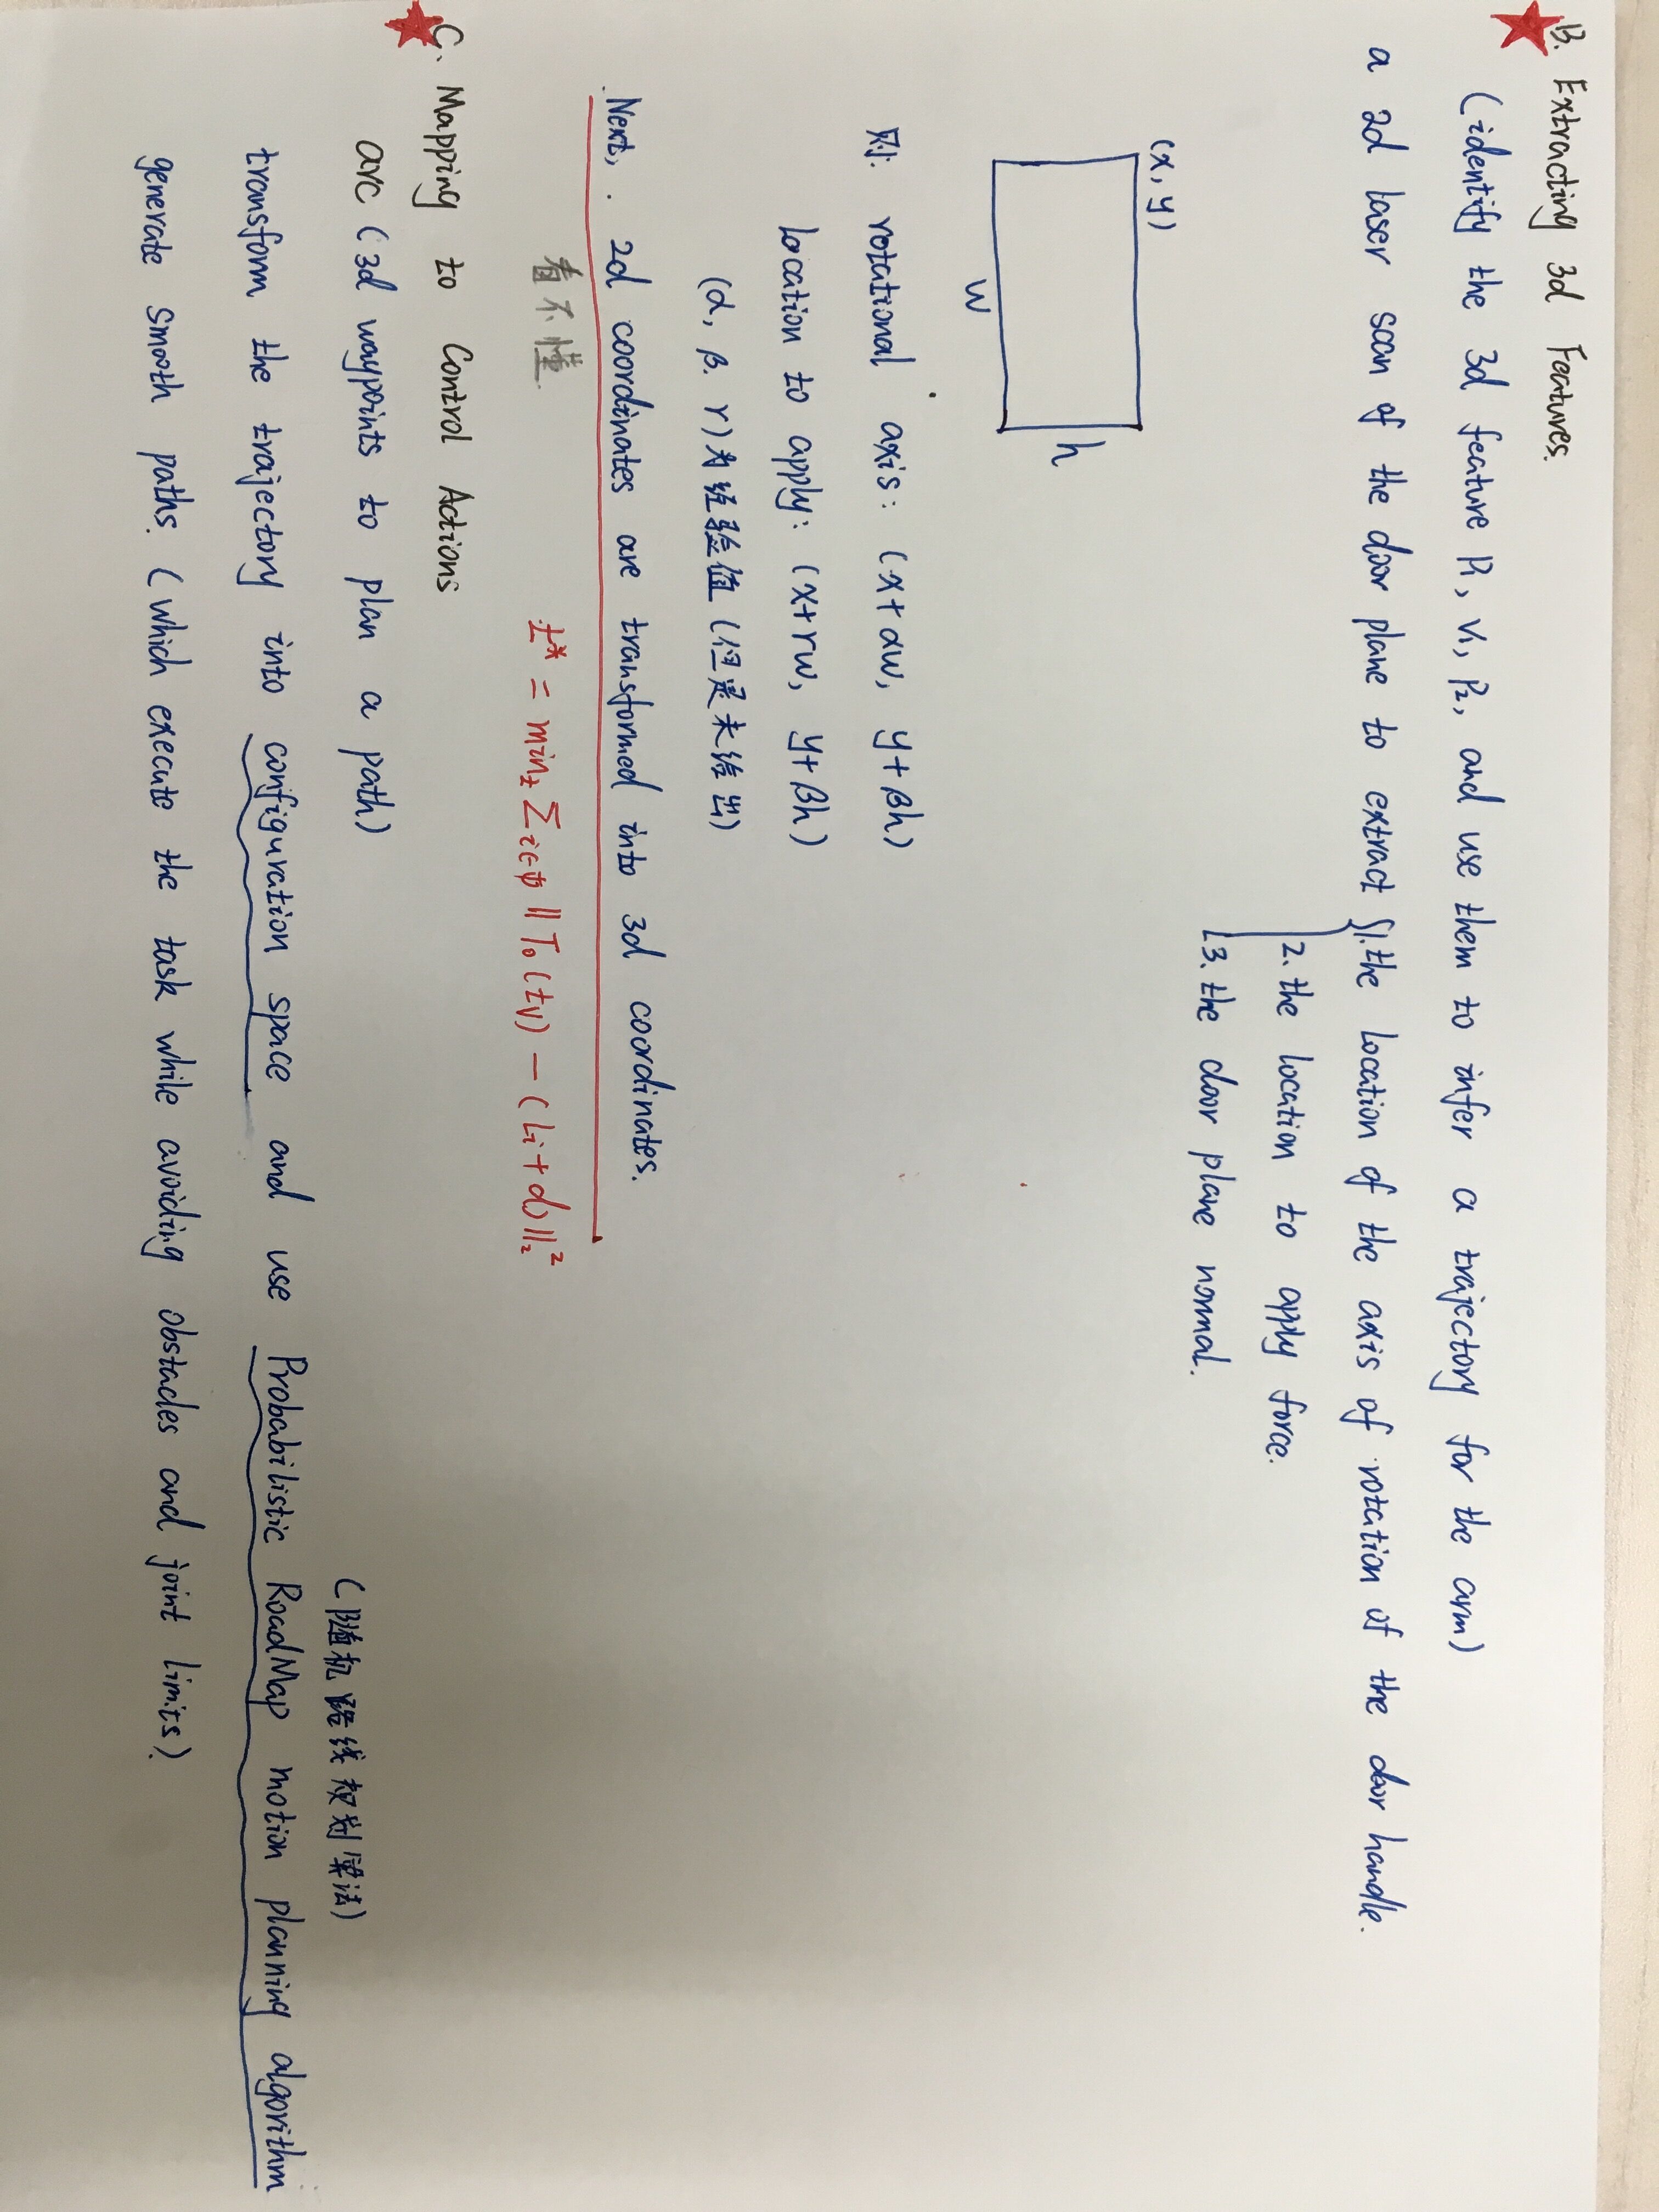 B. Extracting 3d Features.
(identify the 3d feature P1, V1, P2, and use them to infer a trajectory for the arm)
a 2d laser scan of the door plane to extract { 1. the location of the axis of rotation of the door handle.
2. the location to apply force.
3. the door plane normal.
(x, y)
h
w
则: rotational axis: (x+αw, y+βh)
location to apply: (x+rw, y+βh)
(α, β, r)为经验值(但是未给出)
Next, 2d coordinates are transformed into 3d coordinates.
看不懂 t* = min_t Σ_{i∈φ} ‖T₀(tv) − (Li+d)‖₂²
C. Mapping to Control Actions
arc (3d waypoints to plan a path)
(随机路线规划算法)
transform the trajectory into configuration space and use Probabilistic RoadMap motion planning algorithm
generate smooth paths. (which execute the task while avoiding obstacles and joint limits).